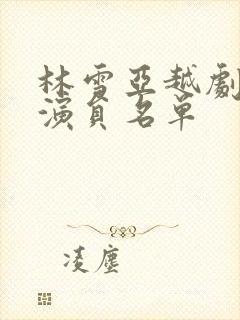 林雪亞越劇
演員名單
凌塵